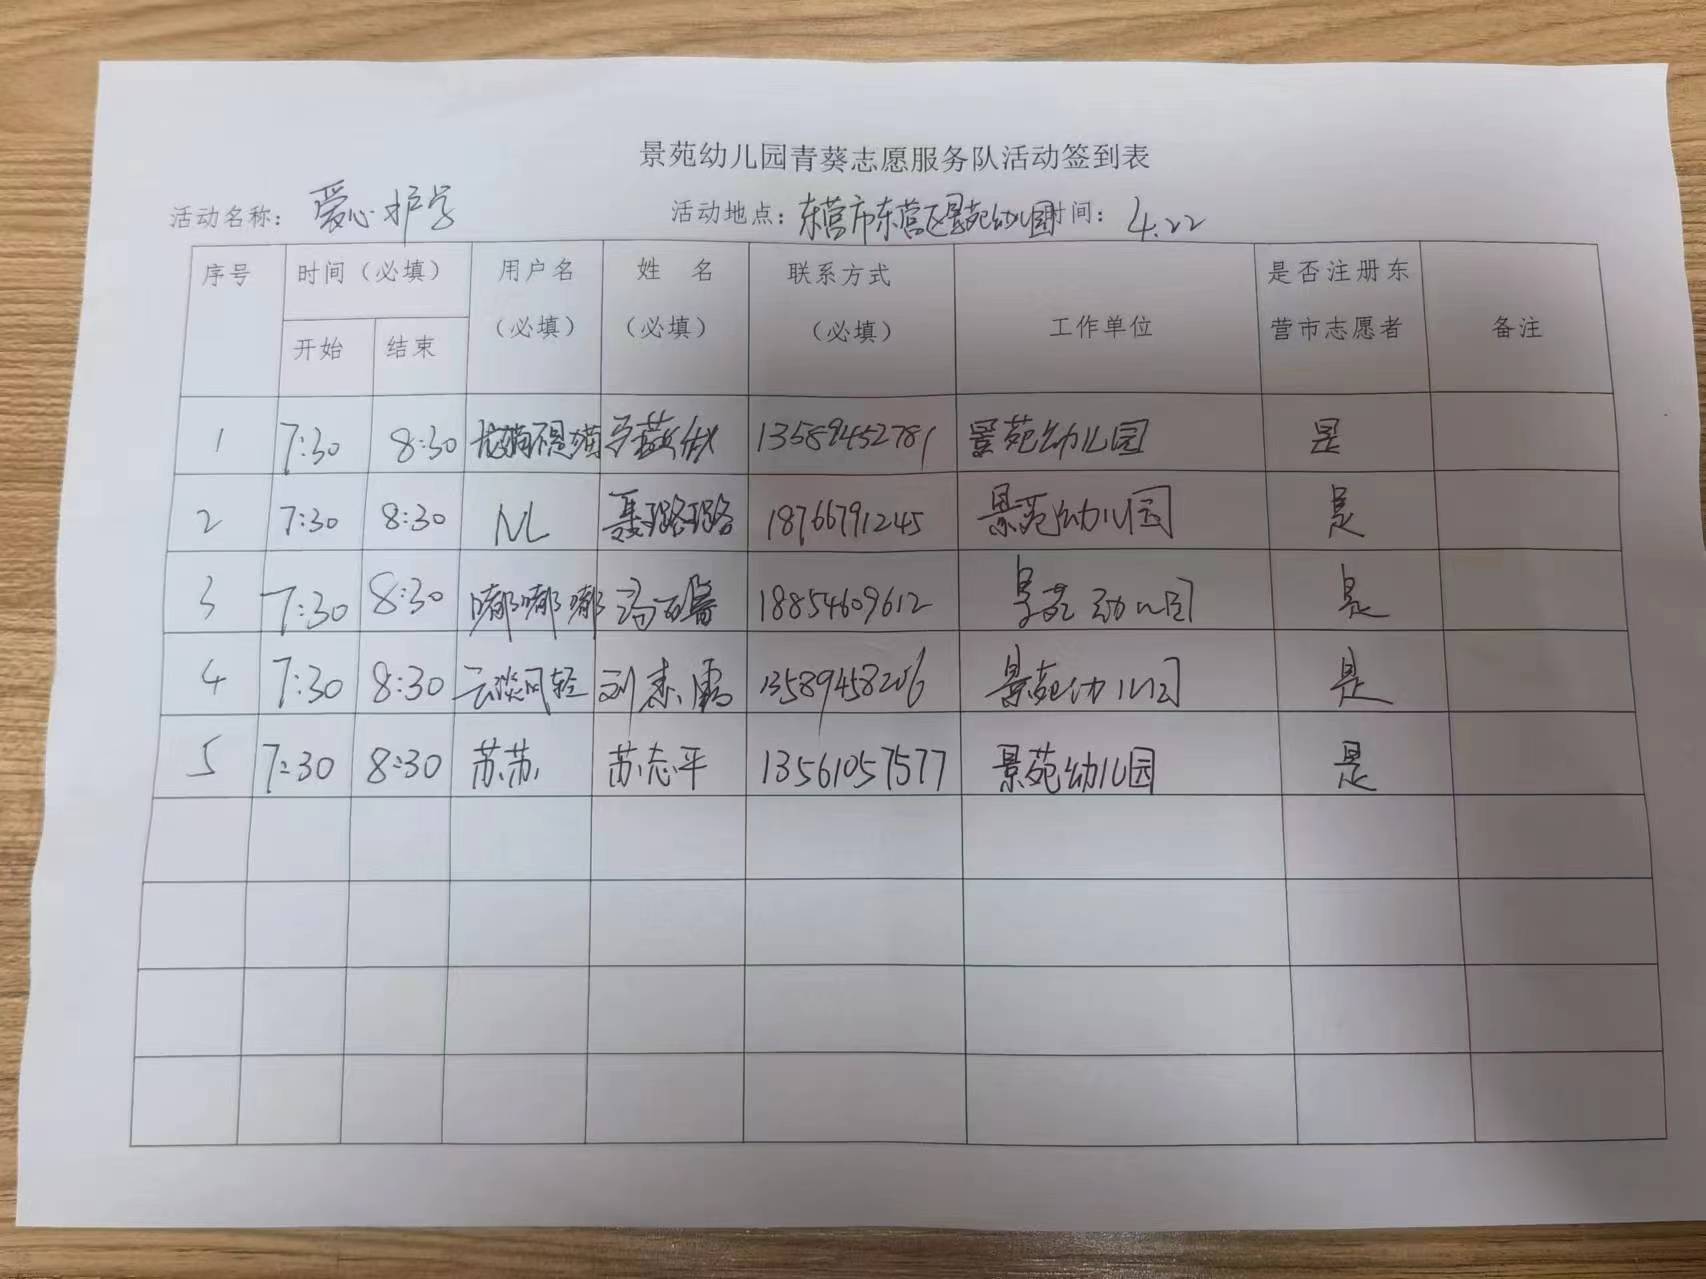 景苑幼儿园青葵志愿服务队活动签到表
活动名称: 爱心护学 活动地点: 东营市东营区景苑幼儿园 时间: 4.22
序号 时间（必填） 用户名 姓 名 联系方式 是否注册东
（必填） （必填） （必填） 工作单位 营市志愿者 备注
开始 结束
1 7:30 8:30 13589452781 景苑幼儿园 是
2 7:30 8:30 NL 聂璐璐 18766791245 景苑幼儿园 是
3 7:30 8:30 嘟嘟嘟 18854609612 景苑幼儿园 是
4 7:30 8:30 云淡风轻 刘 13589458206 景苑幼儿园 是
5 7:30 8:30 苏苏 苏志平 13561057577 景苑幼儿园 是